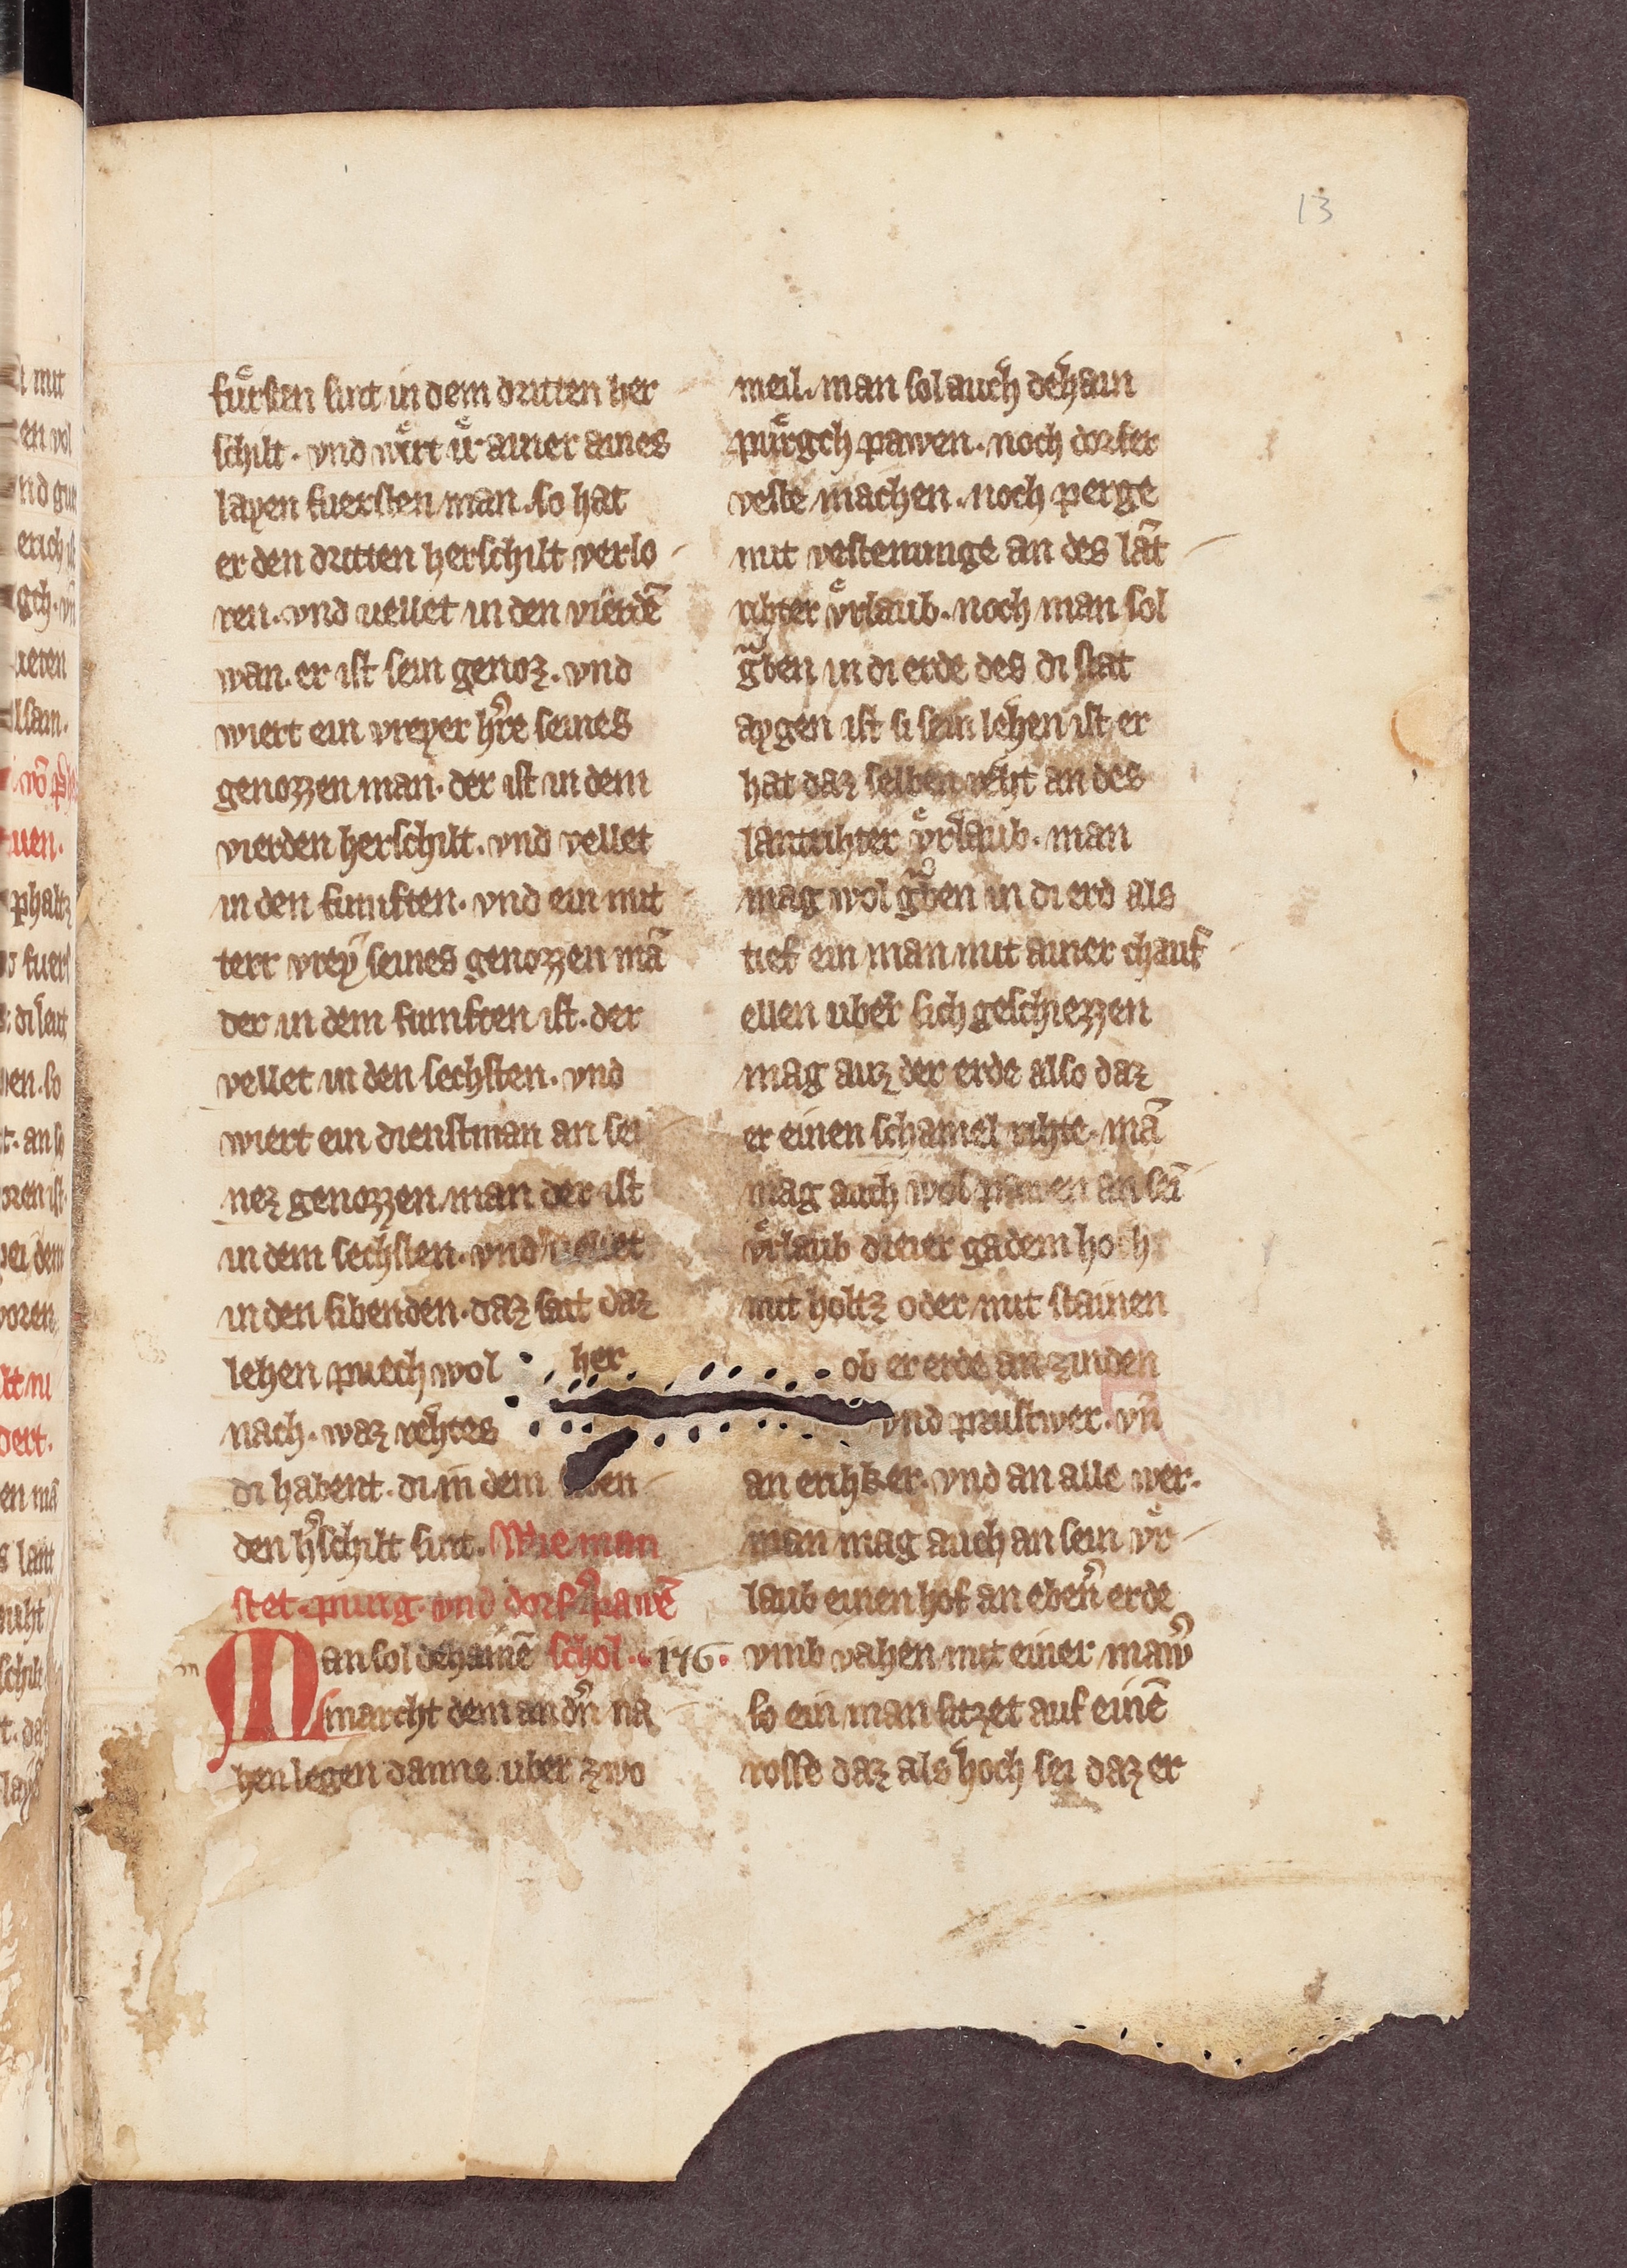 13
fuͤrsten sint in dem dritten her
schilt · vnd wirt uͤr ainer aines
layen fuersten man · so hat
er den dritten herschilt verlo
ren · vnd uellet in den vierdē
wan · er ist sein genoz · vnd
wiert ein vreyer hr̄e seines
genozzen man · der ist in dem
vierden herschilt · vnd vellet
in den funften · vnd ein mit
terr vreẏ seines genozzen mā
der in dem funften ist · der
vellet in den sechsten · vnd
wiert ein dienstman an sei
nez genozzen man der ist
in dem sechsten · vnd uellet
in den sibenden · daz sait daz
lehen puech wol her
nach · waz rehtes
di habent · di in dem ben
den h̾schilt sint · Wie man
stet · purg · vnd dorf̾ pawē
Man sol dehainē schol · 176 ·
marcht dem an dn̄ na
hen legen danne uber zwo
meil · man sol auch dehain
puͤrgch pawen · noch dorfer
veste machen · noch perge
mit vestenunge an des lāt
rihter vͤrlaub · noch man sol
gͣben in di erde des di stat
aygen ist si sein lehen ist er
hat daz selben reht an des
lantrihter vͤrlaub · man
mag wol gͣben in di erd als
tief ein man mit ainer chauf
ellen uber sich geschiezzen
mag auz der erde also daz
er einen schamel rihte · mā
mag auch wol pawen an sei
vͤrlaub dreier gadem hoch
mit holtz oder mit stainen
ob er erde an zinden
vnd prustwer · vn̄
an erihker · vnd an alle wer ·
man mag auch an sein vͤr
laub einen hof an eben̄ erde
vmb vahen mit einer maw̾
so ein man sitzet auf einē
rosse daz als hoch sei daz er